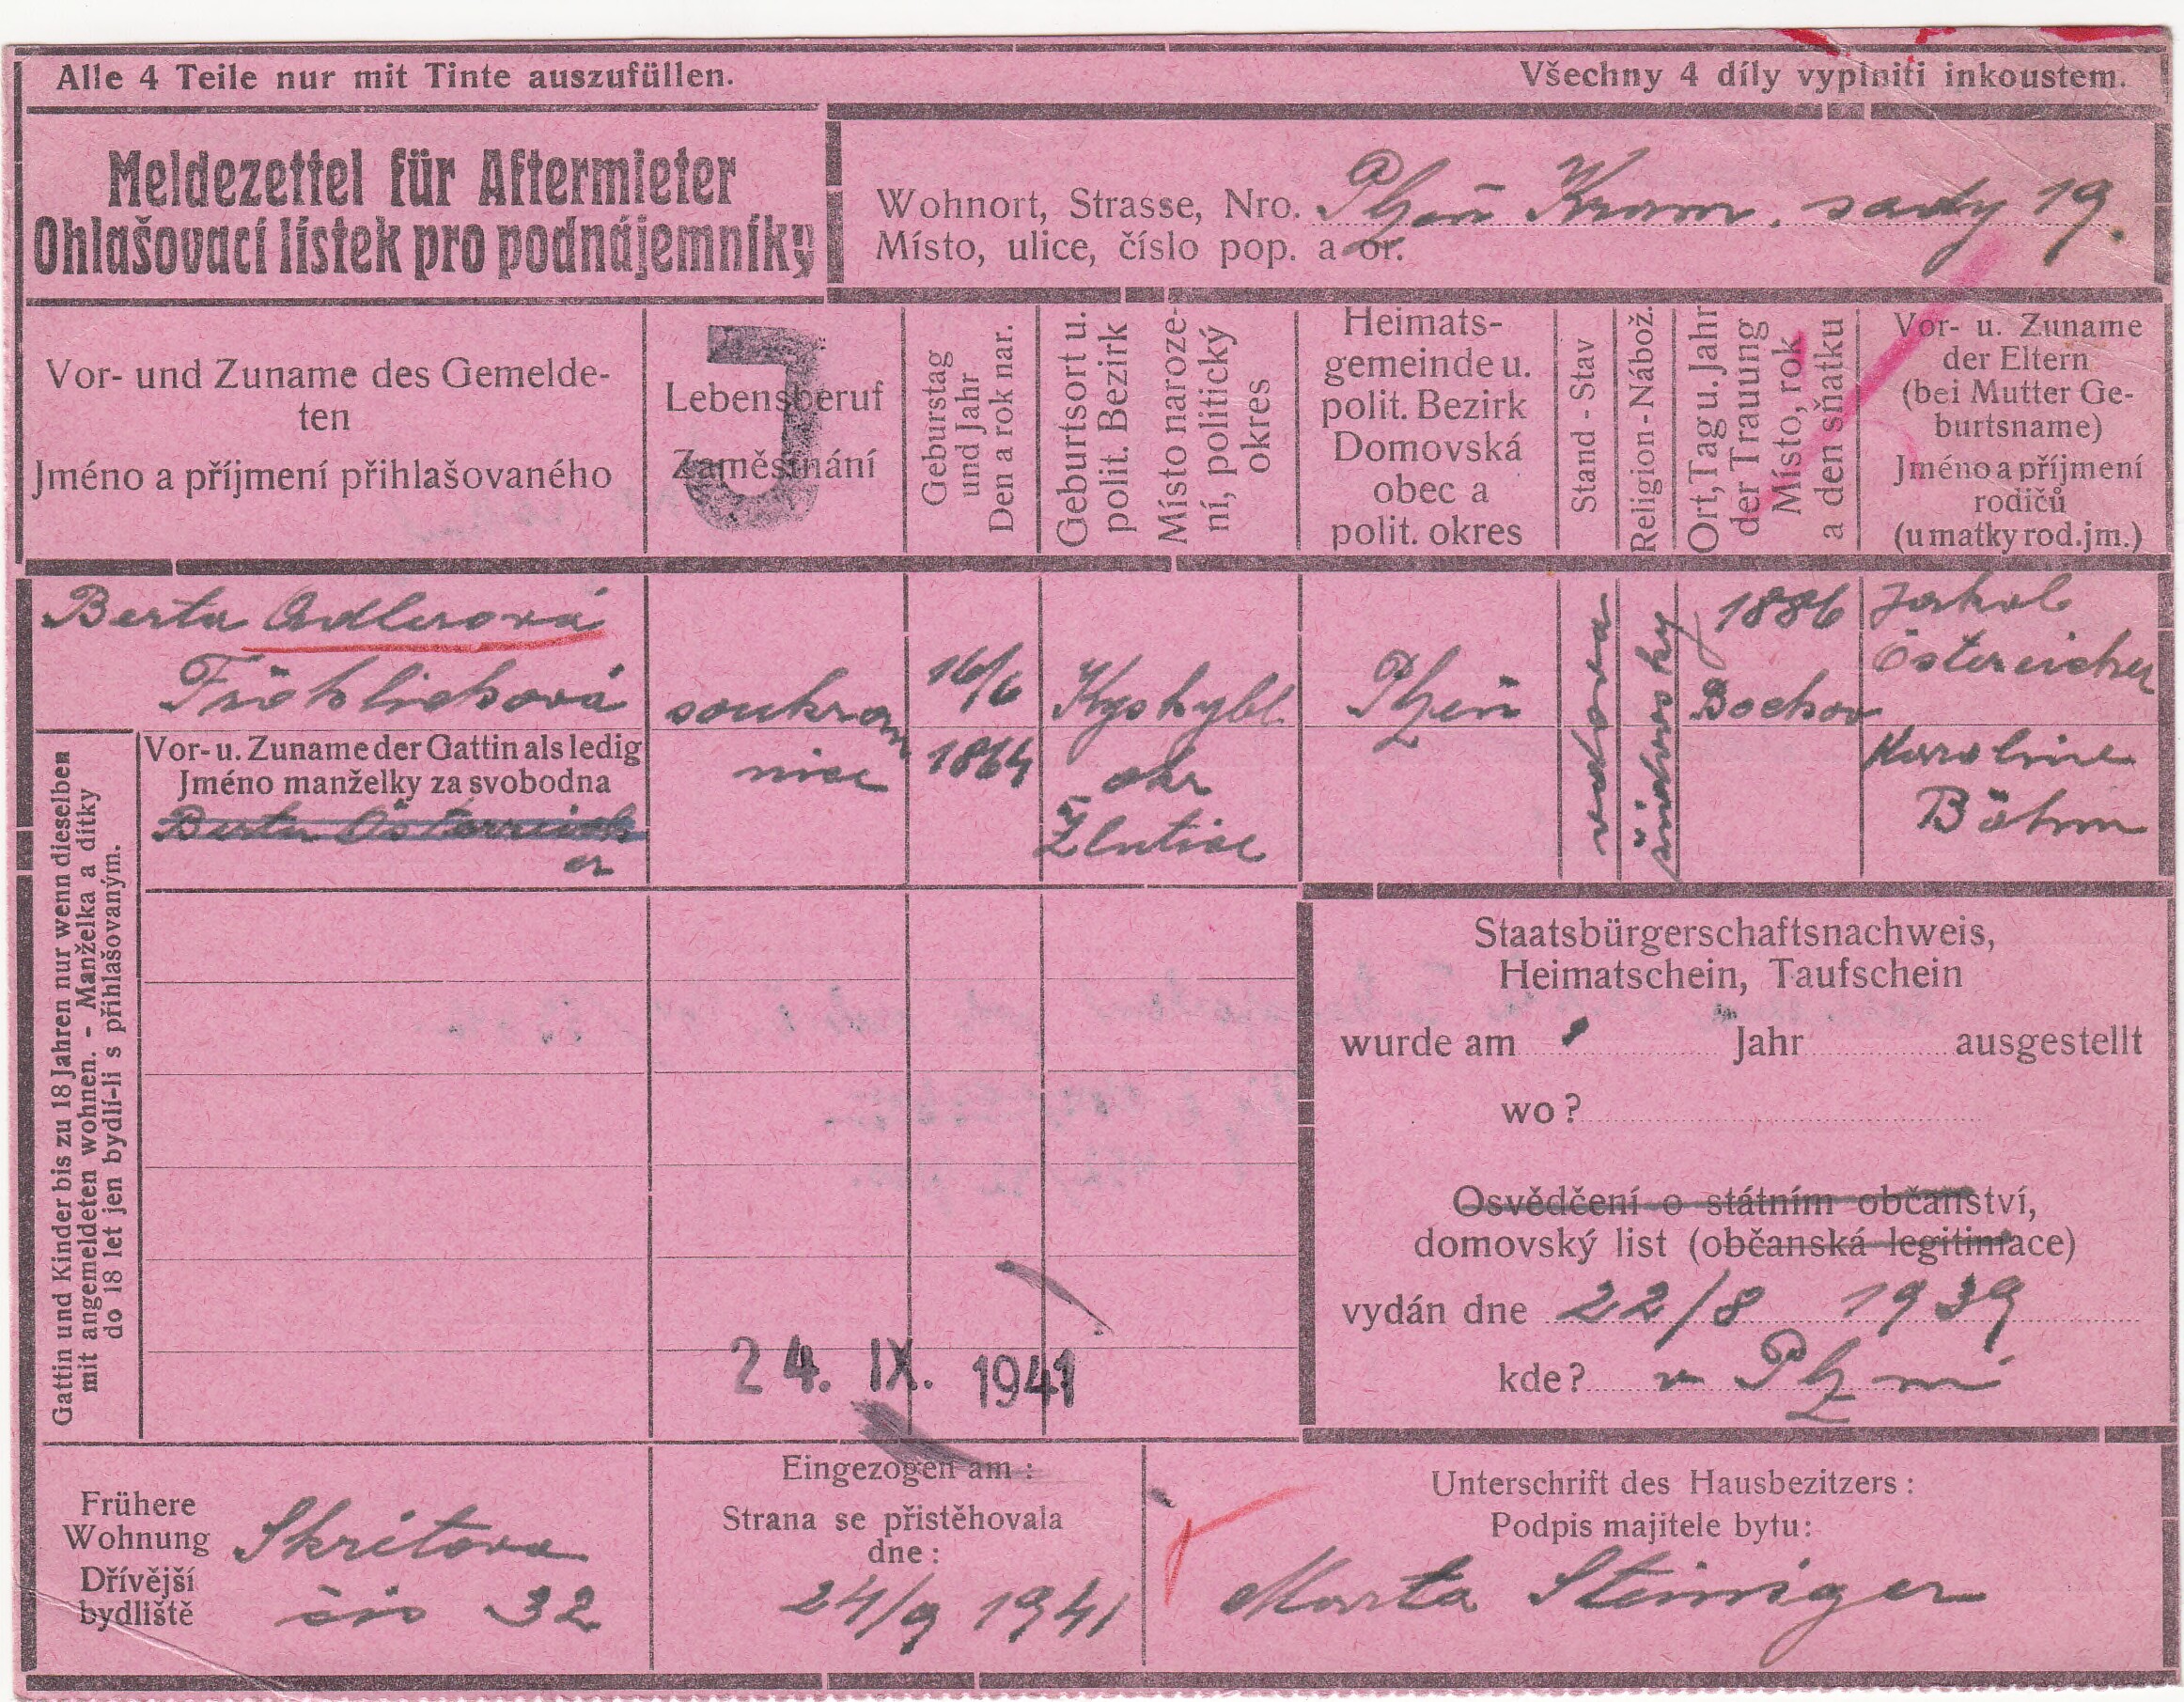 Alle 4 Teile nur mit Tinte auszufüllen.
Všechny 4 díly vyplniti inkoustem.
Meldezettel für Aftermieter
Ohlašovací lístek pro podnájemníky
Wohnort, Strasse, Nro. Plzeň Kram. sady 19.
Místo, ulice, číslo pop. a or.
Vor- und Zuname des Gemelde-
ten
Jméno a příjmení přihlašovaného
J
Lebensberuf
Zaměstnání
Geburstag
und Jahr
Den a rok nar.
Geburtsort u.
polit. Bezirk
Místo naroze-
ní, politický
okres
Heimats-
gemeinde u.
polit. Bezirk
Domovská
obec a
polit. okres
Stand - Stav
Religion - Nábož.
Ort, Tag u. Jahr
der Trauung
Místo, rok
a den sňatku
Vor- u. Zuname
der Eltern
(bei Mutter Ge-
burtsname)
Jméno a příjmení
rodičů
(u matky rod. jm.)
Berta Adlerová
Fröhlichová
soukrom
nice
16/6
1864
Kyshybl
okr
Žlutice
Plzeň
vdova
židovsky
1886
Bochov
Jakob
Östereicher
Karoline
Böhm
Vor- u. Zuname der Gattin als ledig
Jméno manželky za svobodna
Berta Österreich
er
Gattin und Kinder bis zu 18 Jahren nur wenn dieselben
mit angemeldeten wohnen. - Manželka a dítky
do 18 let jen bydlí-li s přihlašovaným.
Staatsbürgerschaftsnachweis,
Heimatschein, Taufschein
wurde am Jahr ausgestellt
wo?
Osvědčení o státním občanství,
domovský list (občanská legitimace)
vydán dne 22/8 1939
kde? v Plzni
24. IX. 1941
Frühere
Wohnung
Dřívější
bydliště
Skrétova
čís 32
Eingezogen am :
Strana se přistěhovala
dne :
24/9 1941
Unterschrift des Hausbezitzers :
Podpis majitele bytu :
Marta Steiniger